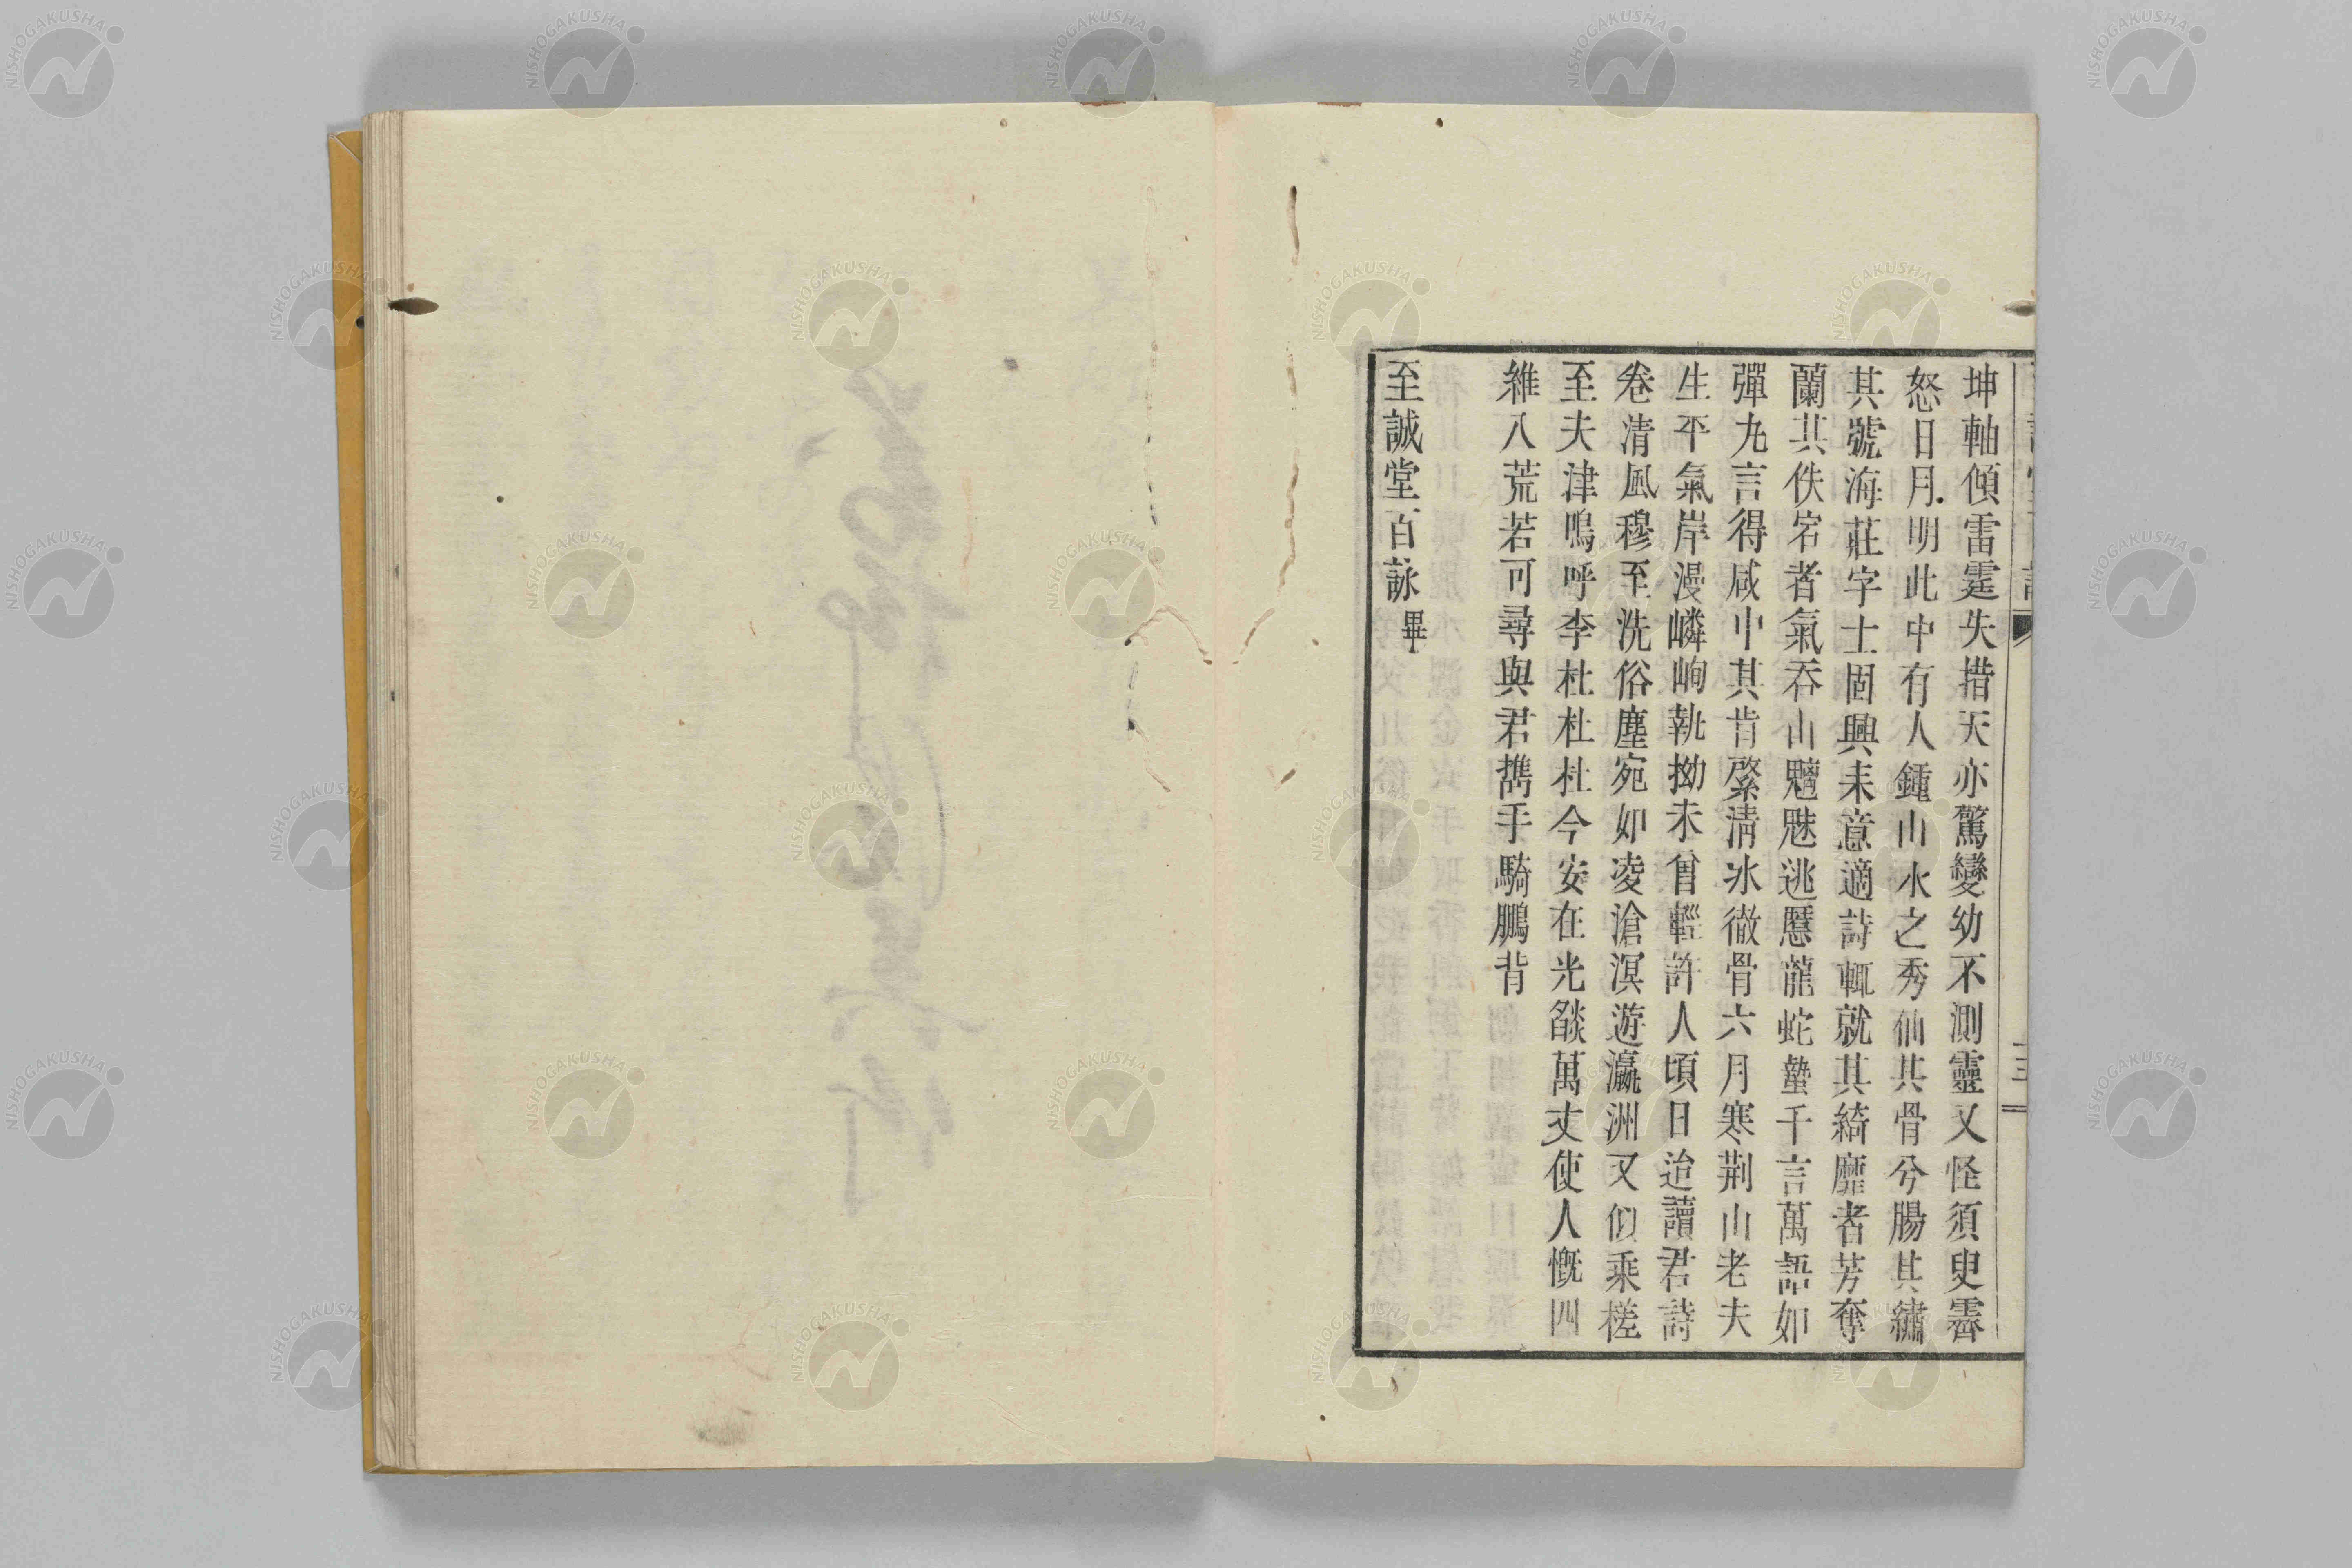 坤軸傾雷霆失措天亦驚變幼不測靈又怪須臾霽
怒日月明此中有人鍾山水之秀仙其骨兮腸其繡
其號海莊字士固興来意適詩輒就其綺靡者芳奪
蘭其佚宕者氣吞山魈魅逃慝龍蛇蟄千言萬語如
彈丸言得咸中其肯綮清冰徹骨六月寒荆山老夫
生平氣岸漫嶙峋執拗未曾輕許人頃日迨讀君詩
卷清風穆至洗俗塵宛如凌滄溟遊瀛洲又似乘槎
至夫津嗚呼李杜杜杜今安在光燄萬丈使人慨四
維八荒若可尋與君攜手騎鵬背
至誠堂百詠 畢
NISHOGAKUSHA